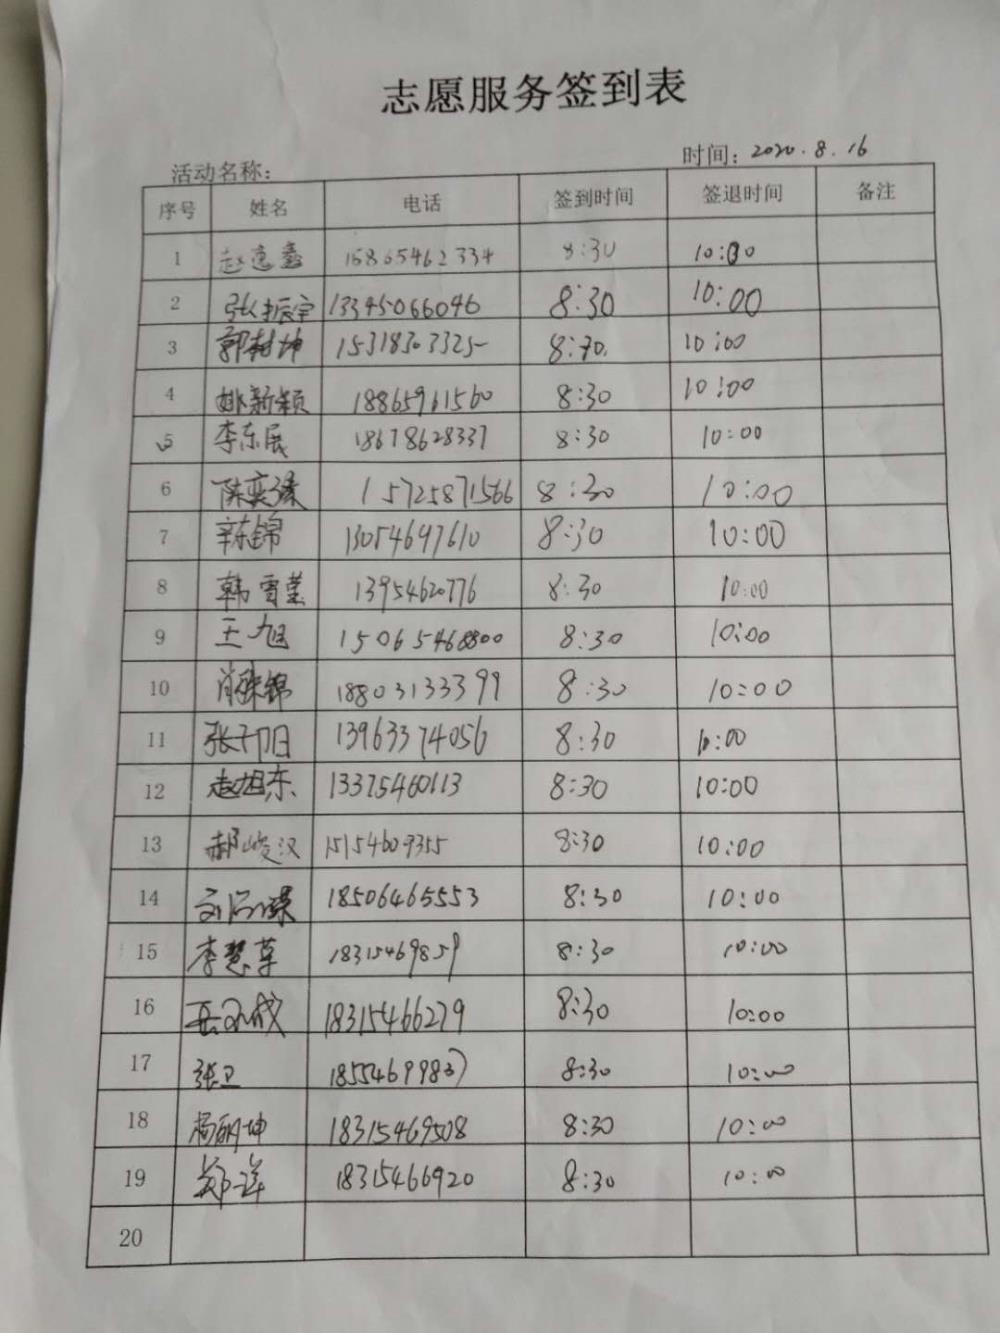 志愿服务签到表
活动名称: 时间: 2020.8.16
序号 姓名 电话 签到时间 签退时间 备注
1 赵逸鑫 15865462334 8:30 10:00
2 张振宇 13345066046 8:30 10:00
3 郭树坤 15318303325 8:30. 10:00
4 姚新颖 18865961560 8:30 10:00
5 李东展 18678628337 8:30 10:00
6 陈奕濡 15725871566 8:30 10:00
7 辛东锦 13054697610 8:30 10:00
8 韩雪莹 13954620776 8:30 10:00
9 王旭 15065468800 8:30 10:00
10 肖 锦 18803133399 8:30 10:00
11 张 13963374056 8:30 10:00
12 赵旭东 13325460113 8:30 10:00
13 郝峻汉 15154609355 8:30 10:00
14 刘 18506465553 8:30 10:00
15 李慧草 18315469859 8:30 10:00
16 18315466279 8:30 10:00
17 张卫 18554699837 8:30 10:00
18 杨丽坤 18315469508 8:30 10:00
19 郑 18315466920 8:30 10:00
20